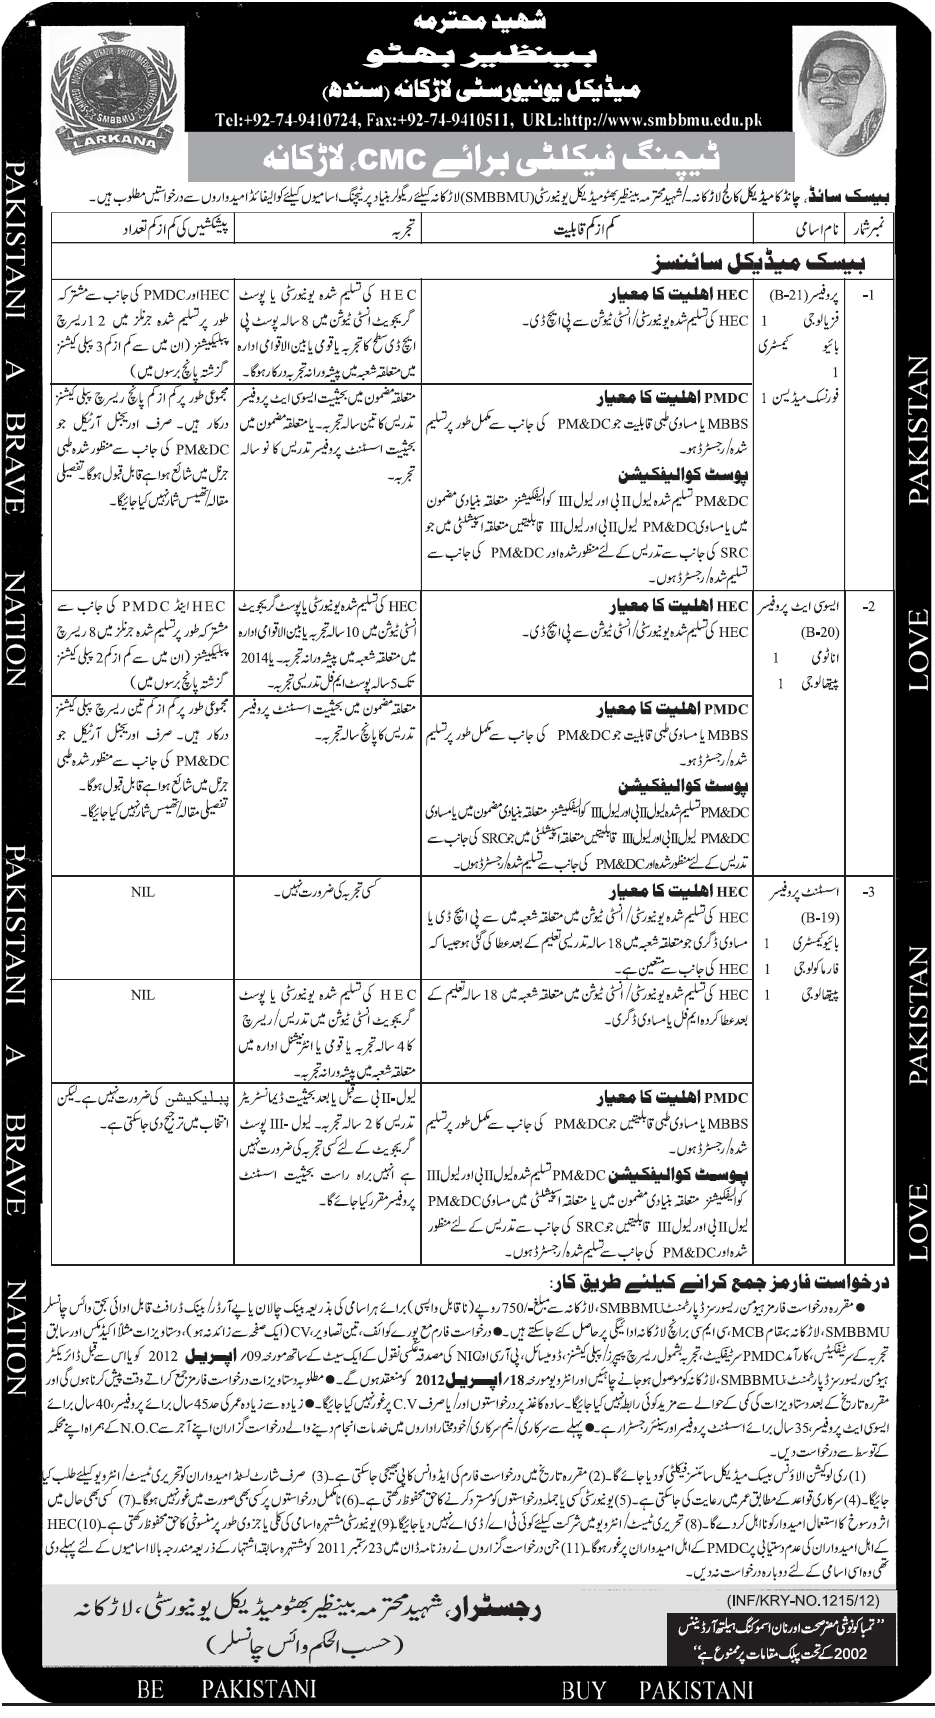 شھید محترمہ
بینظیر بھٹو
میڈیکل یونیورسٹی لاڑکانہ (سندھ)
Tel:+92-74-9410724, Fax:+92-74-9410511, URL:http://www.smbbmu.edu.pk
SHAHEED MOHTARMA BENAZIR BHUTTO MEDICAL UNIVERSITY
SMBBMU
LARKANA
ٹیچنگ فیکلٹی برائے CMC، لاڑکانہ
بیسک سائڈ، چانڈکا میڈیکل کالج لاڑکانہ/شھید محترمہ بینظیر بھٹو میڈیکل یونیورسٹی (SMBBMU) لاڑکانہ کیلئے ریگولر بنیاد پر ٹیچنگ اسامیوں کیلئے کوالیفائڈ امیدواروں سے درخواستیں مطلوب ہیں۔
نمبر شمار
نام اسامی
کم از کم قابلیت
تجربہ
پبلیکیشنس کی کم از کم تعداد
بیسک میڈیکل سائنسز
1-
پروفیسر (B-21)
فزیالوجی 1
بائیو کیمسٹری
1
فورنسک میڈیسن 1
HEC اھلیت کا معیار
HEC کی تسلیم شدہ یونیورسٹی/انسٹی ٹیوشن سے پی ایچ ڈی۔
HEC کی تسلیم شدہ یونیورسٹی یا پوسٹ
گریجویٹ انسٹی ٹیوشن میں 8 سالہ پوسٹ پی
ایچ ڈی سطح کا تجربہ یا قومی یا بین الاقوامی ادارہ
میں متعلقہ شعبہ میں پیشہ ورانہ تجربہ درکار ہوگا۔
HEC اور PMDC کی جانب سے مشترکہ
طور پر تسلیم شدہ جرنلز میں 12 ریسرچ
پبلیکیشنز (ان میں سے کم از کم 3 پبلی کیشنز
گزشتہ پانچ برسوں میں)
PMDC اھلیت کا معیار
MBBS یا مساوی طبی قابلیت جو PM&DC کی جانب سے مکمل طور پر تسلیم
شدہ/رجسٹرڈ ہو۔
پوسٹ کوالیفکیشن
PM&DC تسلیم شدہ لیول II بی اور لیول III کوالیفکیشنز متعلقہ بنیادی مضمون
میں یا مساوی PM&DC لیول II بی اور لیول III قابلیتیں متعلقہ اسپیشلٹی میں جو
SRC کی جانب سے تدریس کے لئے منظور شدہ اور PM&DC کی جانب سے
تسلیم شدہ/رجسٹرڈ ہوں۔
متعلقہ مضمون میں بحیثیت ایسوسی ایٹ پروفیسر
تدریس کا تین سالہ تجربہ۔ یا متعلقہ مضمون میں
بحیثیت اسسٹنٹ پروفیسر تدریس کا نو سالہ
تجربہ۔
مجموعی طور پر کم از کم پانچ ریسرچ پبلی کیشنز
درکار ہیں۔ صرف اوریجنل آرٹیکل جو
PM&DC کی جانب سے منظور شدہ طبی
جرنل میں شائع ہوا ہے قابل قبول ہوگا۔ تفصیلی
مقالہ/تھیسس شمار نہیں کیا جائیگا۔
2-
ایسوسی ایٹ پروفیسر
(B-20)
اناٹومی 1
پیتھالوجی 1
HEC اھلیت کا معیار
HEC کی تسلیم شدہ یونیورسٹی/انسٹی ٹیوشن سے پی ایچ ڈی۔
HEC کی تسلیم شدہ یونیورسٹی یا پوسٹ گریجویٹ
انسٹی ٹیوشن میں 10 سالہ تجربہ یا بین الاقوامی ادارہ
میں متعلقہ شعبہ میں پیشہ ورانہ تجربہ۔ یا 2014
تک 5 سالہ پوسٹ ایم فل تدریسی تجربہ۔
HEC اینڈ PMDC کی جانب سے
مشترکہ طور پر تسلیم شدہ جرنلز میں 8 ریسرچ
پبلیکیشنز (ان میں سے کم از کم 2 پبلی کیشنز
گزشتہ پانچ برسوں میں)
PMDC اھلیت کا معیار
MBBS یا مساوی طبی قابلیت جو PM&DC کی جانب سے مکمل طور پر تسلیم
شدہ/رجسٹرڈ ہو۔
پوسٹ کوالیفکیشن
PM&DC تسلیم شدہ لیول II بی اور لیول III کوالیفکیشنز متعلقہ بنیادی مضمون میں یا مساوی
PM&DC لیول II بی اور لیول III قابلیتیں متعلقہ اسپیشلٹی میں جو SRC کی جانب سے
تدریس کے لئے منظور شدہ اور PM&DC کی جانب سے تسلیم شدہ/رجسٹرڈ ہوں۔
متعلقہ مضمون میں بحیثیت اسسٹنٹ پروفیسر
تدریس کا پانچ سالہ تجربہ۔
مجموعی طور پر کم از کم تین ریسرچ پبلی کیشنز
درکار ہیں۔ صرف اوریجنل آرٹیکل جو
PM&DC کی جانب سے منظور شدہ طبی
جرنل میں شائع ہوا ہے قابل قبول ہوگا۔
تفصیلی مقالہ/تھیسس شمار نہیں کیا جائیگا۔
3-
اسسٹنٹ پروفیسر
(B-19)
بائیو کیمسٹری 1
فارماکولوجی 1
پیتھالوجی 1
HEC اھلیت کا معیار
HEC کی تسلیم شدہ یونیورسٹی/انسٹی ٹیوشن میں متعلقہ شعبہ میں سے پی ایچ ڈی یا
مساوی ڈگری جو متعلقہ شعبہ میں 18 سالہ تدریسی تعلیم کے بعد عطا کی گئی ہو جیسا کہ
HEC کی جانب سے متعین ہے۔
کسی تجربہ کی ضرورت نہیں۔
NIL
HEC کی تسلیم شدہ یونیورسٹی/انسٹی ٹیوشن میں متعلقہ شعبہ میں 18 سالہ تعلیم کے
بعد عطا کردہ ایم فل یا مساوی ڈگری۔
HEC کی تسلیم شدہ یونیورسٹی یا پوسٹ
گریجویٹ انسٹی ٹیوشن میں تدریس/ریسرچ
کا 4 سالہ تجربہ یا قومی یا انٹرنیشنل ادارہ میں
متعلقہ شعبہ میں پیشہ ورانہ تجربہ۔
NIL
PMDC اھلیت کا معیار
MBBS یا مساوی طبی قابلیتیں جو PM&DC کی جانب سے مکمل طور پر تسلیم
شدہ/رجسٹرڈ ہوں۔
پوسٹ کوالیفکیشن PM&DC تسلیم شدہ لیول II بی اور لیول III
کوالیفکیشنز متعلقہ بنیادی مضمون میں یا متعلقہ اسپیشلٹی میں مساوی PM&DC
لیول II بی اور لیول III قابلیتیں جو SRC کی جانب سے تدریس کے لئے منظور
شدہ اور PM&DC کی جانب سے تسلیم شدہ/رجسٹرڈ ہوں۔
لیول-II بی سے قبل یا بعد بحیثیت ڈیمانسٹریٹر
تدریس کا 2 سالہ تجربہ۔ لیول-III پوسٹ
گریجویٹ کے لئے کسی تجربہ کی ضرورت نہیں
ہے انہیں براہ راست بحیثیت اسسٹنٹ
پروفیسر مقرر کیا جائے گا۔
پبلیکیشن کی ضرورت نہیں ہے۔ لیکن
انتخاب میں ترجیح دی جاسکتی ہے۔
درخواست فارمز جمع کرانے کیلئے طریق کار:
● مقررہ درخواست فارمز ہیومن ریسورسز ڈپارٹمنٹ SMBBMU، لاڑکانہ سے مبلغ -/750 روپے (ناقابل واپسی) برائے ہر اسامی کی بذریعہ بینک چالان یا پے آرڈر/بینک ڈرافٹ قابل ادائی بحق وائس چانسلر
SMBBMU، لاڑکانہ بمقام MCB، سی ایم سی برانچ لاڑکانہ ادائیگی پر حاصل کئے جاسکتے ہیں۔ ● درخواست فارم مع پورے کوائف، تین تصاویر، CV (ایک صفحے سے زائد نہ ہو)، دستاویزات مثلاً اکیڈمکس اور سابق
تجربہ کے سرٹیفکیٹس، کارآمد PMDC سرٹیفکیٹ، تجربہ بشمول ریسرچ پیپرز/پبلی کیشنز، ڈومیسائل، پی آر سی اور NIC کی مصدقہ عکسی نقول کے ایک سیٹ کے ساتھ مورخہ 09/اپریل 2012 کو یا اس سے قبل ڈائریکٹر
ہیومن ریسورسز ڈپارٹمنٹ SMBBMU، لاڑکانہ کو موصول ہوجانے چاہئیں اور انٹرویو مورخہ 18/اپریل 2012 کو منعقد ہوں گے۔ ● مطلوبہ دستاویزات درخواست فارمز جمع کراتے وقت پیش کرنا ہوں گی اور
مقررہ تاریخ کے بعد دستاویزات کی کمی کے حوالے سے مزید کوئی رابطہ نہیں کیا جائیگا۔ سادہ کاغذ پر درخواستوں اور/یا صرف C.V پر غور نہیں کیا جائیگا۔ ● زیادہ سے زیادہ عمر کی حد 45 سال برائے پروفیسر، 40 سال برائے
ایسوسی ایٹ پروفیسر، 35 سال برائے اسسٹنٹ پروفیسر اور سینئر رجسٹرار ہے۔ ● پہلے سے سرکاری/نیم سرکاری/خودمختار اداروں میں خدمات انجام دینے والے درخواست گزاران اپنے آجر سے N.O.C کے ہمراہ اپنے محکمہ
کے توسط سے درخواست دیں۔
(1) ری لوکیشن الاؤنس بیسک میڈیکل سائنسز فیکلٹی کو دیا جائے گا۔ (2) مقررہ تاریخ میں درخواست فارم کی ایڈوانس کاپی بھیجی جاسکتی ہے۔ (3) صرف شارٹ لسٹڈ امیدواران کو تحریری ٹیسٹ/انٹرویو کیلئے طلب کیا
جائیگا۔ (4) سرکاری قواعد کے مطابق عمر میں رعایت کی جاسکتی ہے۔ (5) یونیورسٹی کسی یا جملہ درخواستوں کو مسترد کرنے کا حق محفوظ رکھتی ہے۔ (6) نامکمل درخواستوں پر کسی بھی صورت میں غور نہیں ہوگا۔ (7) کسی بھی حال میں
اثر و رسوخ کا استعمال امیدوار کو نااہل کردے گا۔ (8) تحریری ٹیسٹ/انٹرویو میں شرکت کیلئے کوئی ٹی اے/ڈی اے نہیں دیا جائیگا۔ (9) یونیورسٹی مشتہرہ اسامی کی کلی یا جزوی طور پر منسوخی کا حق محفوظ رکھتی ہے۔ (10) HEC
کے اہل امیدواران کی عدم دستیابی پر PMDC کے اہل امیدواران پر غور ہوگا۔ (11) جن درخواست گزاروں نے روزنامہ ڈان میں 23/ستمبر 2011 کو مشتہرہ سابقہ اشتہار کے ذریعہ مندرجہ بالا اسامیوں کے لئے پہلے دی
تھی وہ اسی اسامی کے لئے دوبارہ درخواست نہ دیں۔
رجسٹرار، شھید محترمہ بینظیر بھٹو میڈیکل یونیورسٹی، لاڑکانہ
(حسب الحکم وائس چانسلر)
(INF/KRY-NO.1215/12)
"تمباکو نوشی مضر صحت اور نان اسموکنگ ہیلتھ آرڈیننس
2002 کے تحت پبلک مقامات پر ممنوع ہے"
PAKISTANI A BRAVE NATION PAKISTANI A BRAVE NATION
LOVE PAKISTAN LOVE PAKISTAN
BE PAKISTANI BUY PAKISTANI